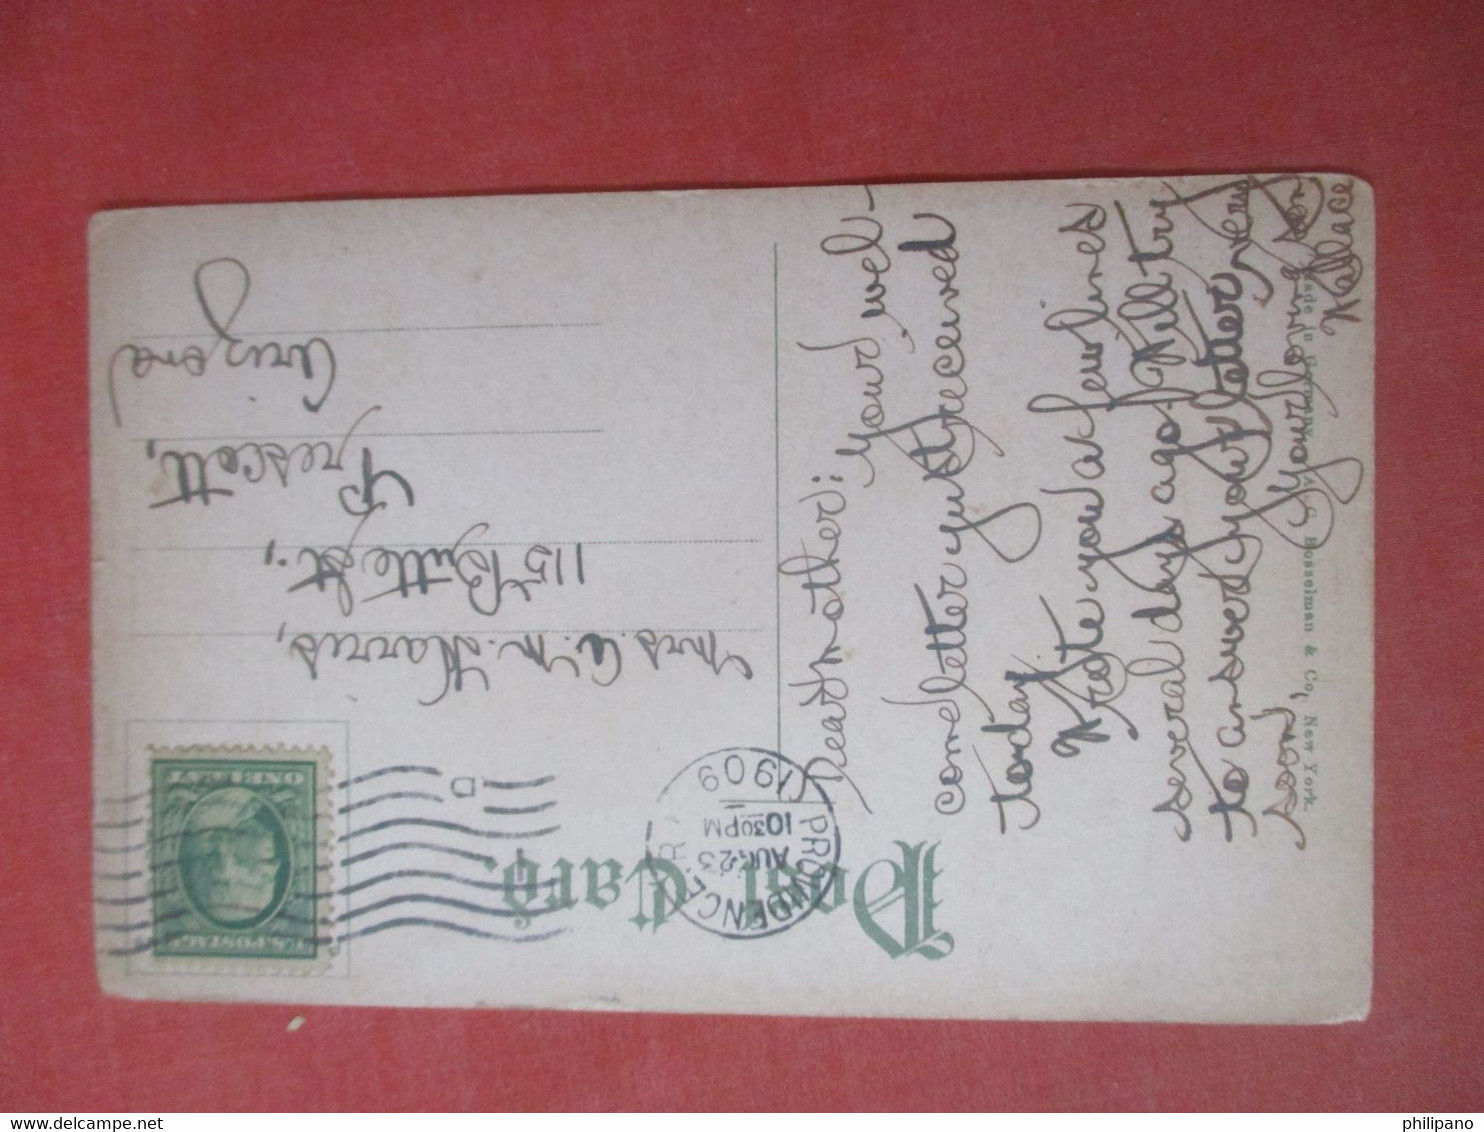 Post Card.
PROVIDENCE, R.I.
AUG 23
10 30 PM
1909
D
U.S. POSTAGE
ONE CENT
Mrs. A. M. Harris,
115 Butte St.,
Prescott,
Arizona
Dear Mother: Your wel-
come letter just received
today
Wrote you a few lines
several days ago. Will try
to answer your letter very
soon,
Your loving son
Wallace
Made in Germany. A. C. Bosselman & Co., New York.
philipano